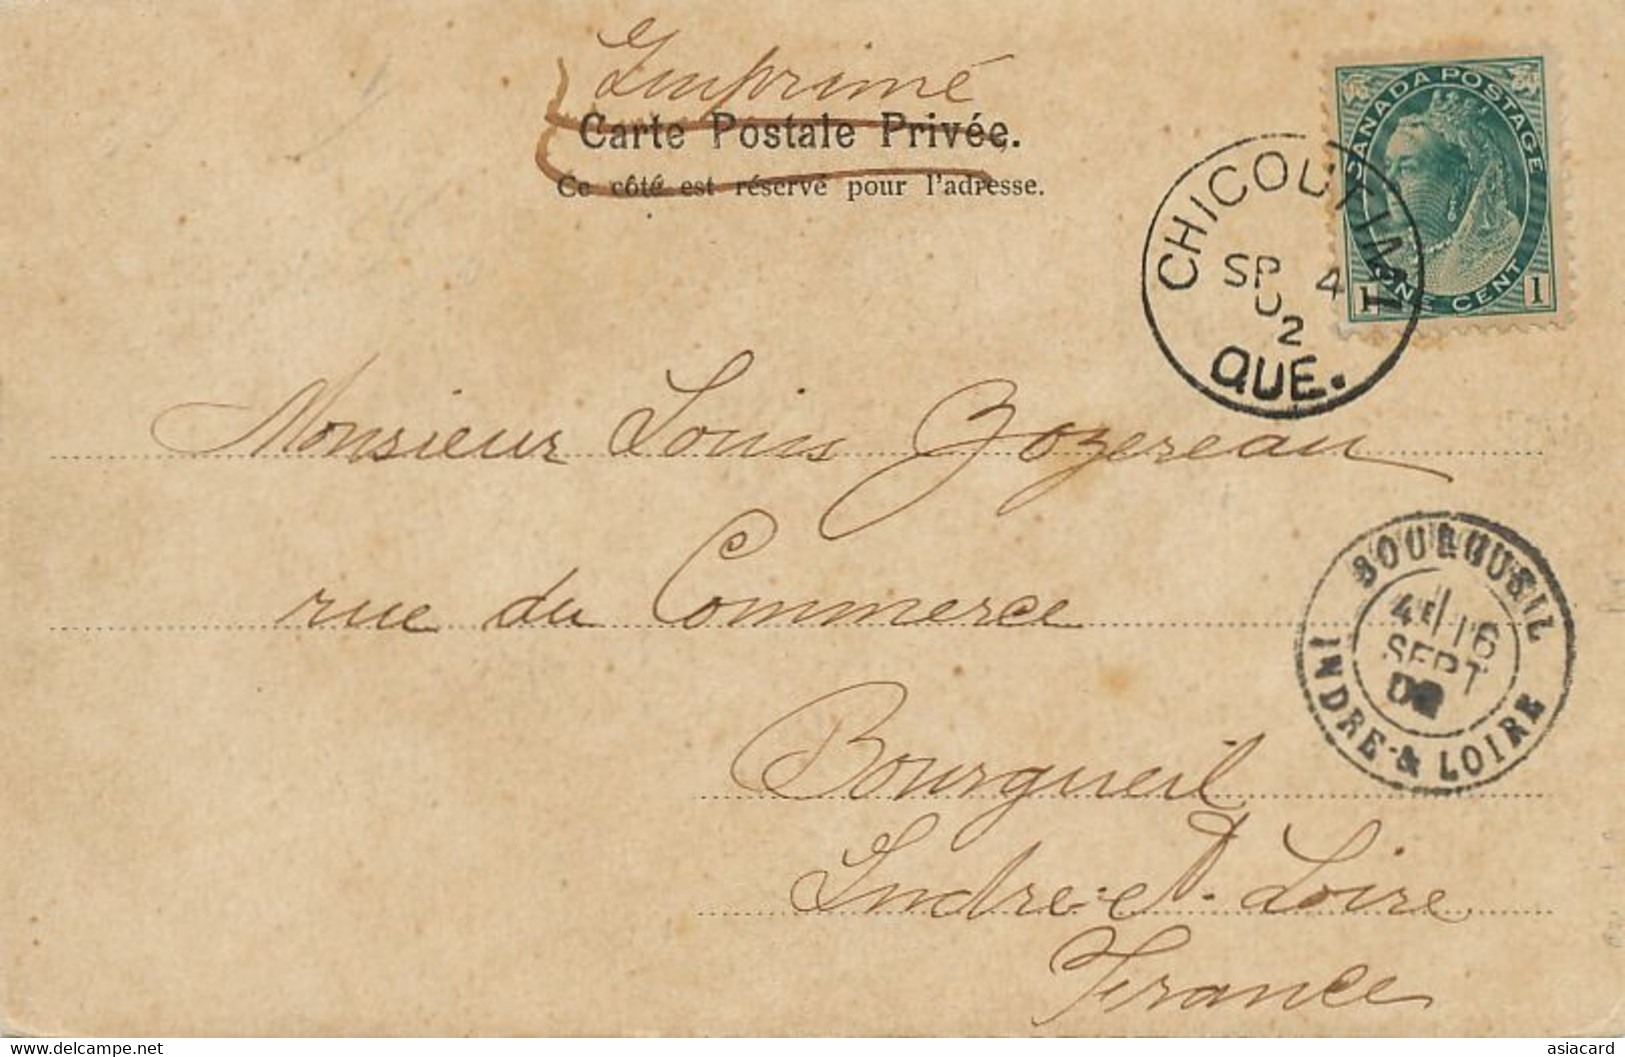 Imprimé
Carte Postale Privée.
Ce côté est réservé pour l'adresse.
CANADA POSTAGE
ONE CENT
1 1
CHICOUTIMI
SP 4
02
QUE.
Monsieur Louis Bozereau
rue du Commerce
BOURGUEIL
4E 16
SEPT
02
INDRE-&-LOIRE
Bourgueil
Indre-et-Loire
France
asiacard